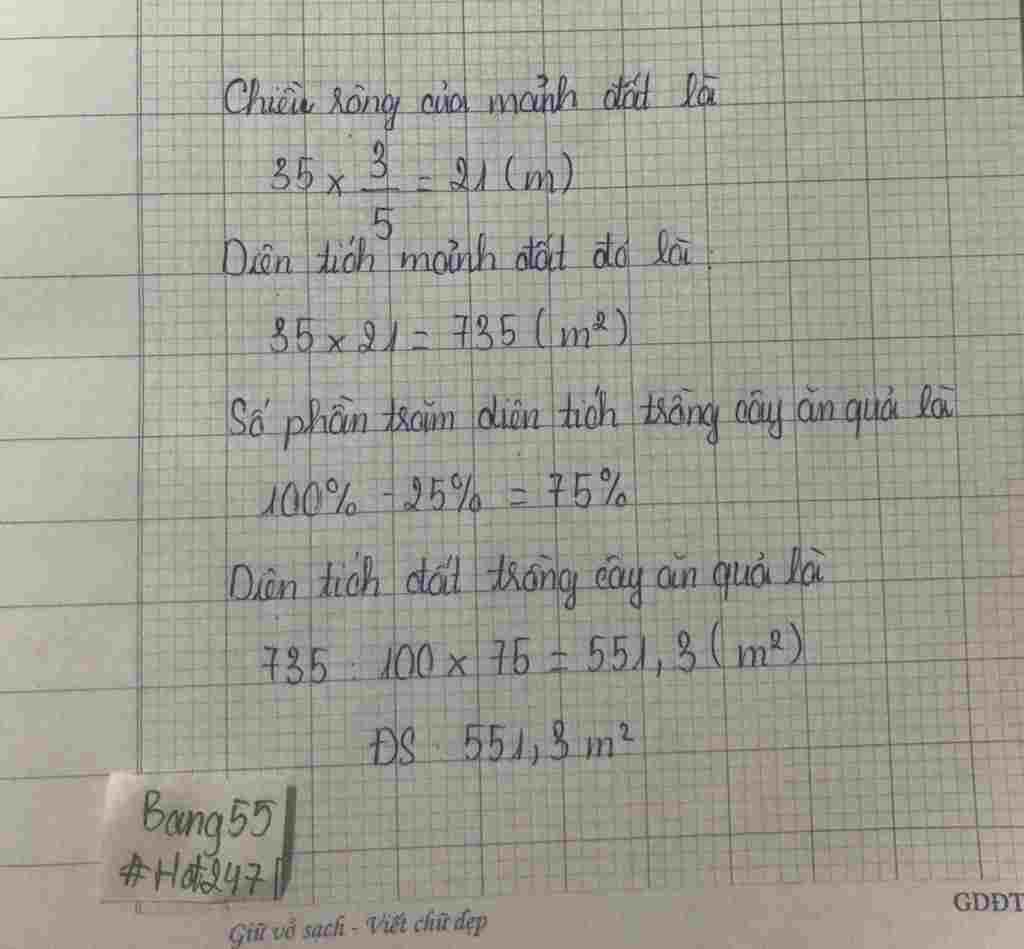 Chiều rộng của mảnh đất là
35 × 3/5 = 21 (m)
Diện tích mảnh đất đó là:
35 × 21 = 735 (m²)
Số phần trăm diện tích trồng cây ăn quả là
100% - 25% = 75%
Diện tích đất trồng cây ăn quả là
735 : 100 × 75 = 551,3 (m²)
ĐS : 551,3 m²
Bang55
#Hoi247
Giữ vở sạch - Viết chữ đẹp
GDĐT